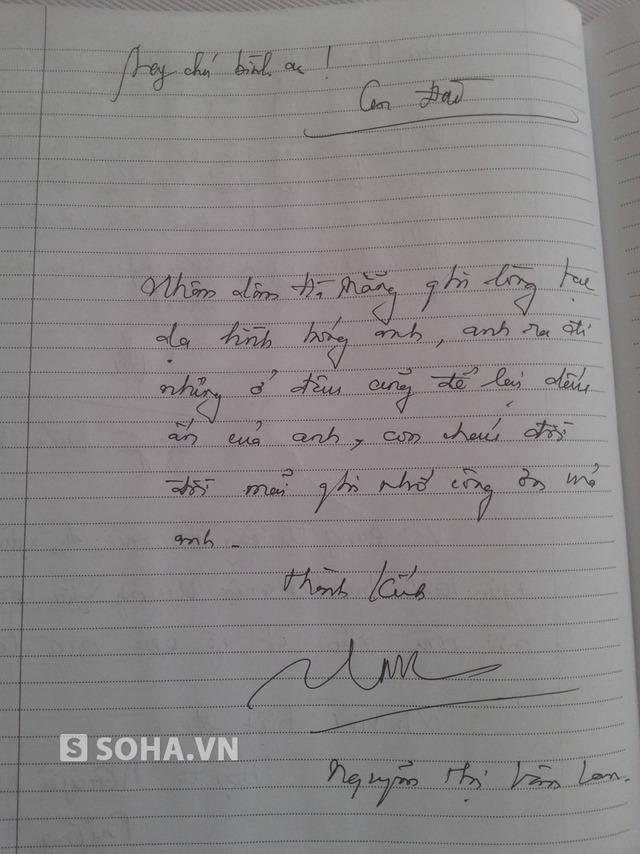 chú bình an!
Con
Nhân dân Đà Nẵng ghi lòng tạc
dạ hình bóng anh, anh ra đi
nhưng ở đâu cũng để lại dấu
ấn của anh, con cháu đời
đời mãi ghi nhớ công ơn
anh.
Thành kính
Nguyễn Thị Vân Lan.
SOHA.VN